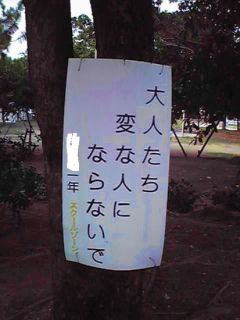 大人たち
変な人に
ならないで
一年
スクールゾーン